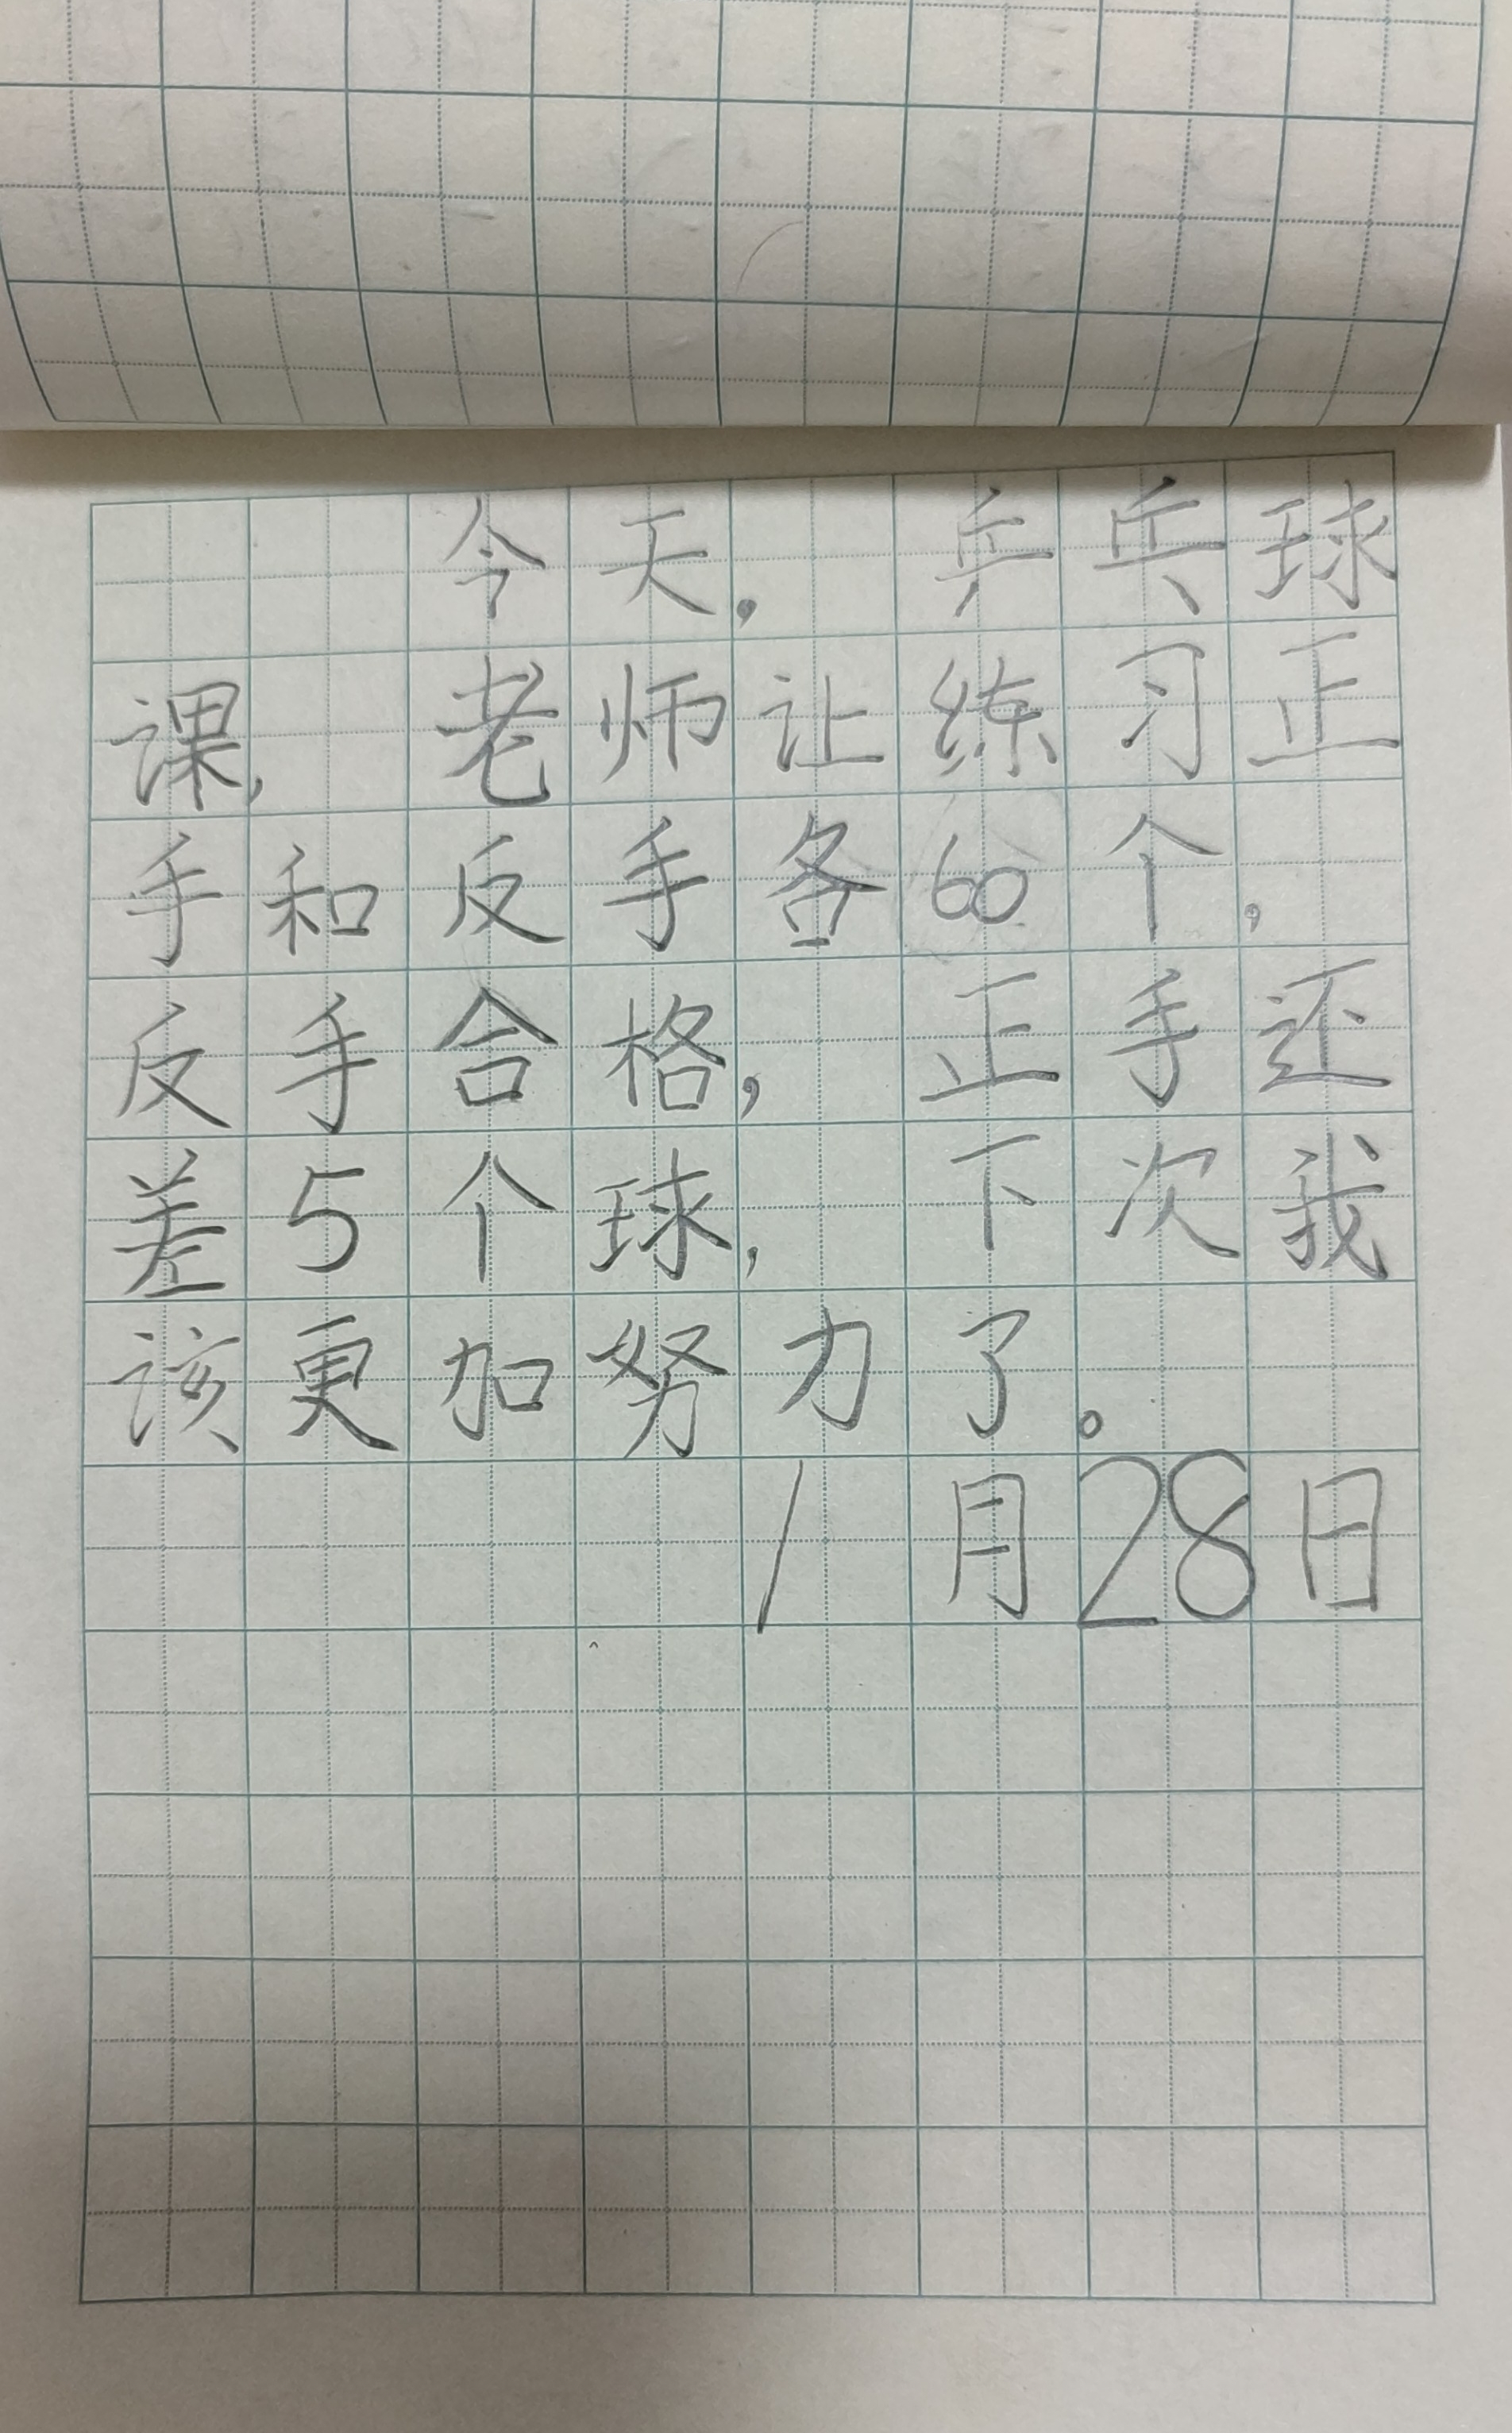 今天，乒乓球
课，老师让练习正
手和反手各60个，
反手合格，正手还
差5个球，下次我
该更加努力了。
1月28日